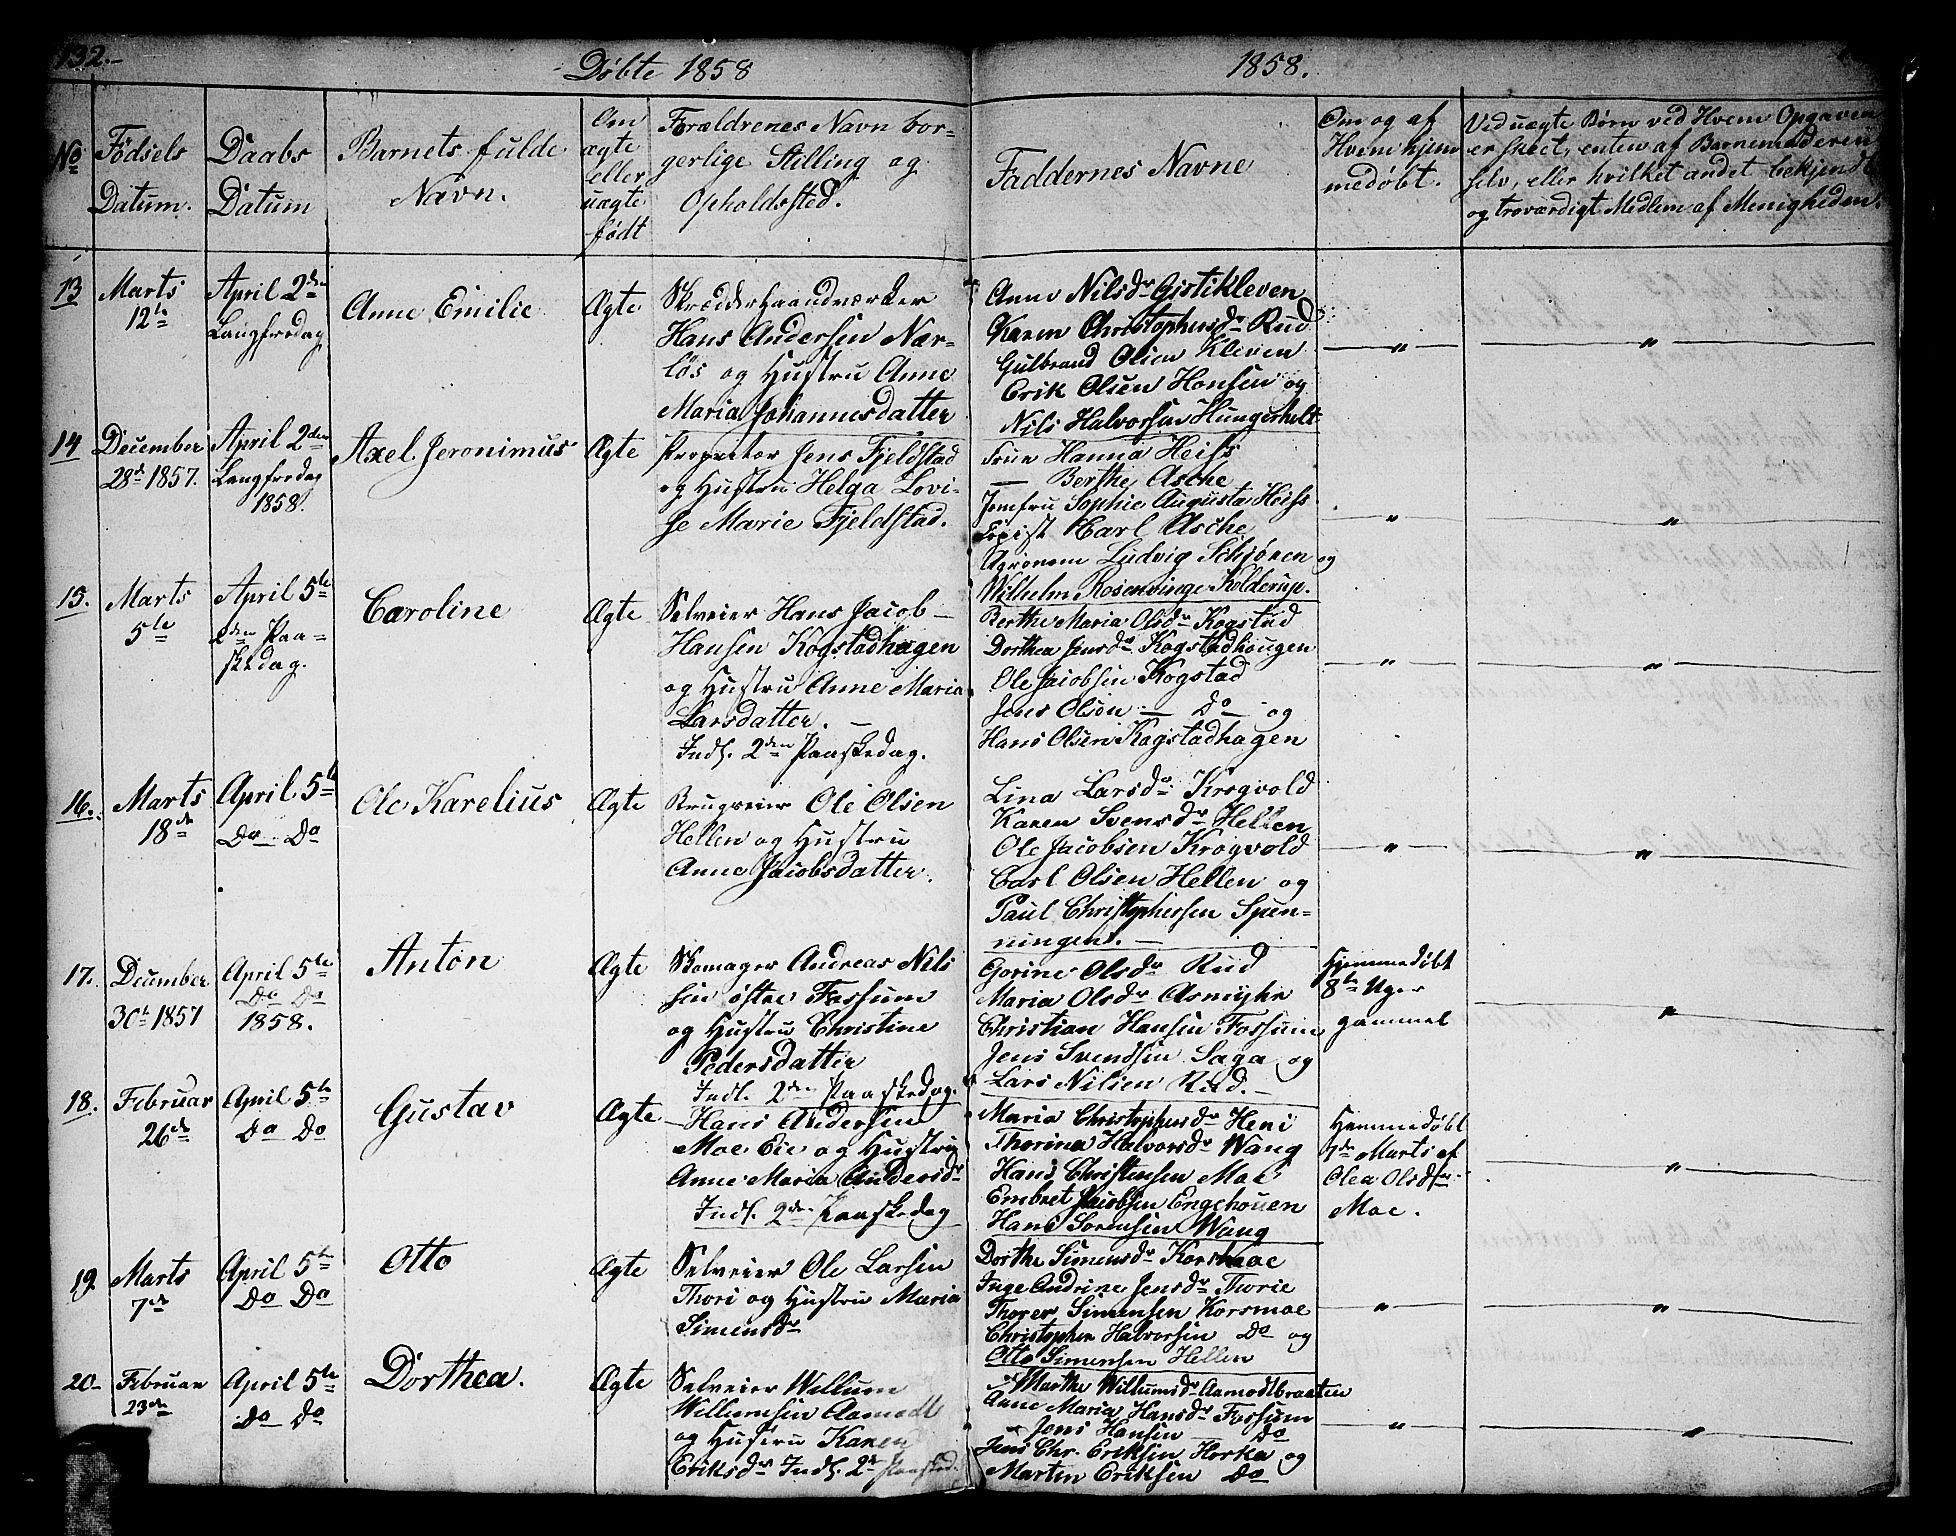 132.
Døbte 1858
1858.
No
Fødsels
Datum.
Daabs
Datum
Barnets fulde
Navn.
Om
ægte
eller
uægte
født
Forældrenes Navn bor-
gerlige Stilling og
Opholdssted.
Faddernes Navne
Om og af
Hvem hjem
medøbt.
Ved uægte Børn ved Hvem Opgaven
er skeet, enten af Barnemoderen
selv, eller hvilket andet bekjendt
og troværdigt Medlem af Menigheden.
13
Marts
12te
April 2den
Langfredag
Anne Emilie
Ægte
Skrædderhaandværker
Hans Andersen Nær-
løs og Hustru Anne
Maria Johannesdatter
Anne Nilsdr Gistikleven
Karen Christophersdr Rud
Gulbrand Olsen Kleven
Erik Olsen Honsen og
Nils Halvorsen Hungerholt
14
December
28de 1857.
April 2den
Langfredag
1858.
Axel Jeronimus
Ægte
Proprietær Jens Fjeldstad
og Hustru Helga Lovi-
se Marie Fjeldstad.
Frue Hanna Heiss
— Berthe Asche
Jomfru Sophie Augusta Heiss
Copist Carl Asche
Agronom Ludvig Schiønen og
Wilhelm Rosenvinge Kolderup.
15.
Marts
5te
April 5te
2den Paa-
skedag.
Caroline
Ægte
Selveier Hans Jacob
Hansen Kogstadhagen
og Hustru Anne Maria
Larsdatter. —
Indl. 2den Paaskedag.
Berthe Maria Olsdr Kogstad
Dorthea Jensdr Kogstadhougen
Ole Jacobsen Kogstad
Jens Olsen — Do — og
Hans Olsen Kogstadhagen
16.
Marts
18de
April 5te
Do Do
Ole Karelius
Ægte
Brugseier Ole Olsen
Hellen og Hustru
Anne Jacobsdatter.
Lina Larsdr Krogvold
Karen Svensdr Hellen
Ole Jacobsen Krogvold
Carl Olsen Hellen og
Paul Christophersen Spen-
ningen. —
17.
December
30te 1857
April 5te
Do Do
1858.
Anton
Ægte
Skomager Andreas Nils
sen østre Fossum
og Hustru Christine
Pedersdatter
Indl. 2den Paaskedag.
Gorine Olsdr Rud
Maria Olsdr Asmyhr
Christian Hansen Fossum
Jens Svendsen Saga og
Lars Nilsen Rud. —
Hjemmedøbt
8te Uger
gammel
18.
Februar
26de
April 5te
Do Do
Gustav
Ægte
Hans Andersen
Moe Eie og Hustru
Anne Maria Andersdr
Indl. 2den Paaskedag
Maria Christophersdr Heni
Thorina Halvorsdr Wang
Hans Christensen Moe
Embret Jacobsen Engehouen
Hans Sørensen Wang
Hjemmedøbt
7de Marts af
Olea Olsdtr
Moe.
19.
Marts
7de
April 5te
Do Do
Otto
Ægte
Selveier Ole Larsen
Thori og Hustru Maria
Simensdr
Dorthe Simensdr Korsmoe
Inge Andrine Jensdr Thorie
Thorer Simensen Korsmoe
Christopher Halvorsen Do og
Otto Simensen Hellen
20
Februar
23de
April 5te
Do Do
Dorthea.
Ægte
Selveier Willum
Willumsen Aamodt
og Hustru Karen
Eriksdr Indl. 2den Paasked.
Marthe Willumsdr Aamodtbraaten
Anne Maria Hansdr Fossum
Jens Hansen — Do
Jens Chr. Eriksen Horka og
Martin Eriksen Do